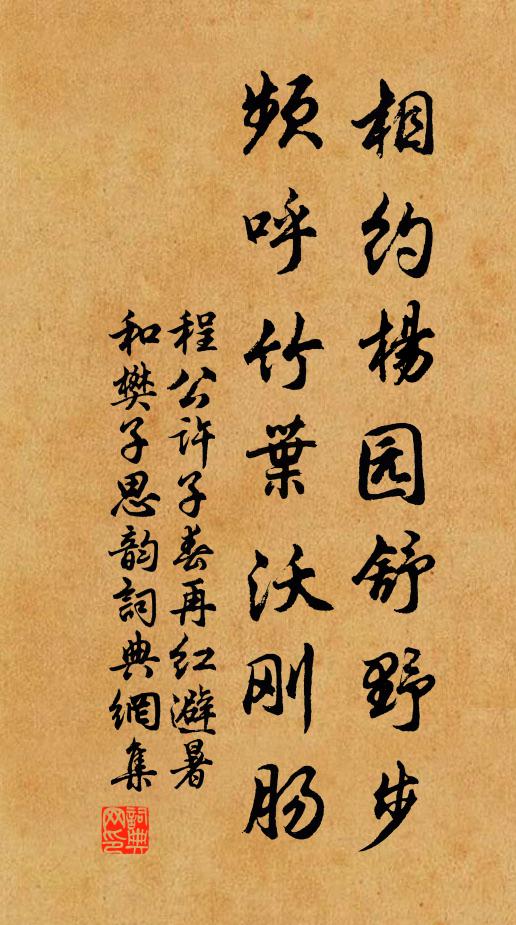 相约杨园舒野步
频呼竹葉沃刚肠
程公许子春再红避暑
和樊子思韵詞典網集
詞典
网印